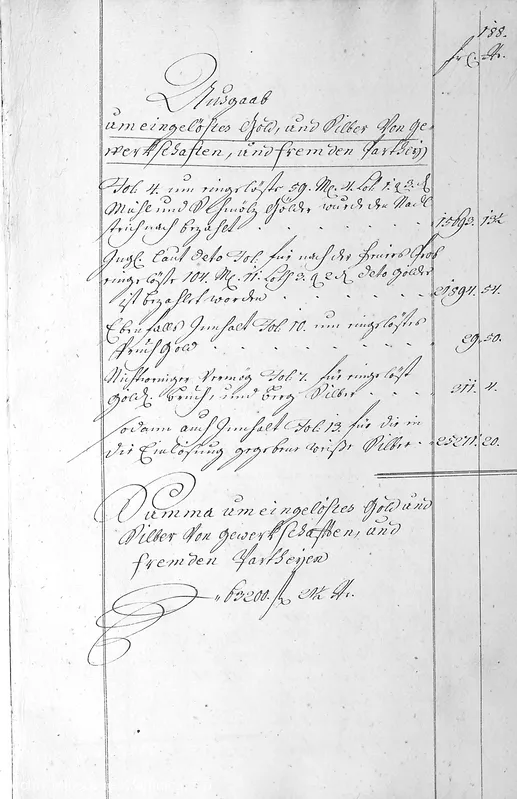 188.
fr. Xr.
Ausgaab
um eingelöstes Gold, und Silber Von Ge=
werkschaften, und fremden Parthey
Fol. 4. um eingelöste 59. M. 4. Lot 1. q 3. d
Mühl und Schmölz Gölder wurde den
nach bezahlt . . . . 15693. 13 1/2
Ingl. laut deto Fol. für nach der
eingelöste 104. M. 11. Loth 3. q 2. d deto Gölder
ist bezahlet worden . . . . 21894. 54.
Ebenfalls Innhalt Fol. 10. um eingelöstes
Pruch Gold . . . . 29. 50.
Vermög Fol. 7. für eingelöst
Gold. Bruch, und Berg Silber . . 311. 4.
Sodann auch Innhalt Fol. 13. für die in
die Einlösung gegebene weiße Silber . . 25271. 20.
Summa um eingelöstes Gold und
Silber Von Gewerkschaften, und
fremden Partheyen
63200. f 21 1/2 Xr.